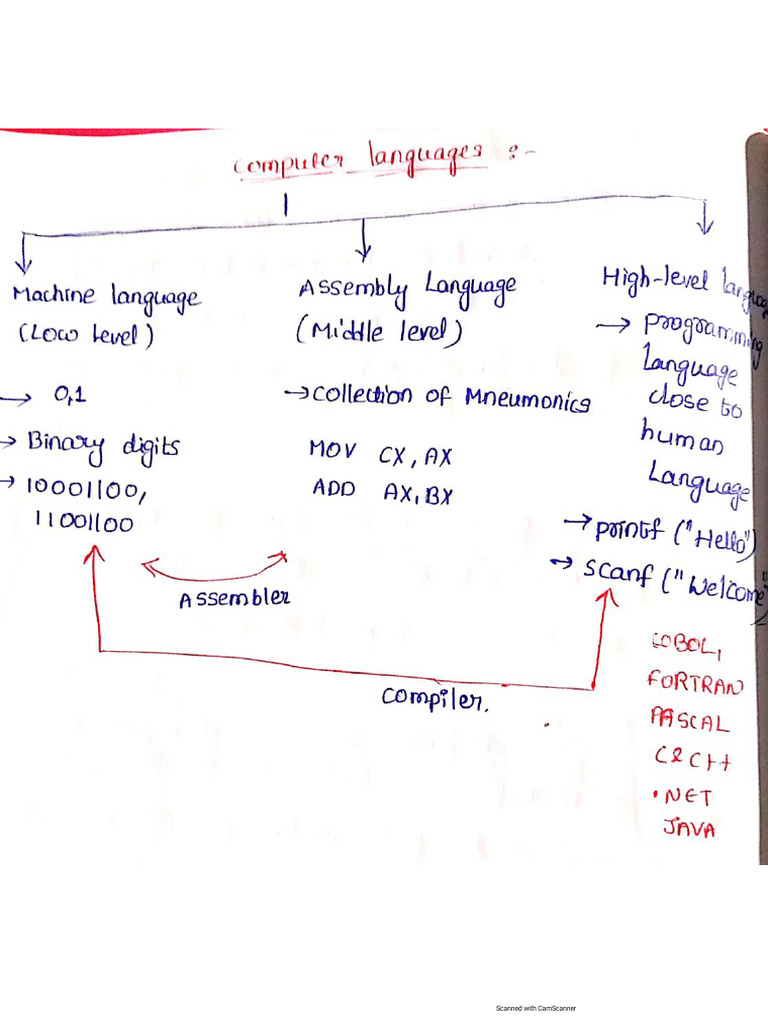 Computer languages :-
Machine language
(Low level)
→ 0,1
→ Binary digits
→ 10001100,
11001100
Assembly Language
(Middle level)
→ collection of Mneumonics
MOV CX, AX
ADD AX, BX
High-level language
→ programming
language
close to
human
Language
→ printf ("Hello")
→ scanf ("Welcome"
Assembler
Compiler.
COBOL,
FORTRAN
PASCAL
C & C++
.NET
JAVA
Scanned with CamScanner